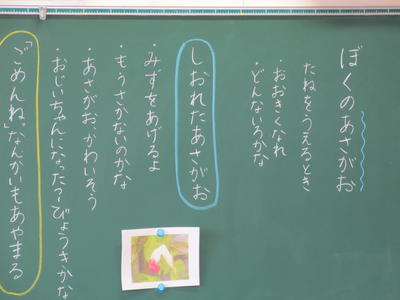 ぼくのあさがお
たねをうえるとき
・おおきくなれ
・どんないろかな
しおれたあさがお
・みずをあげるよ
・もうさかないのかな
・あさがお、かわいそう
・おじいちゃんになった?びょうきかな
「ごめんね」なんかいもあやまる